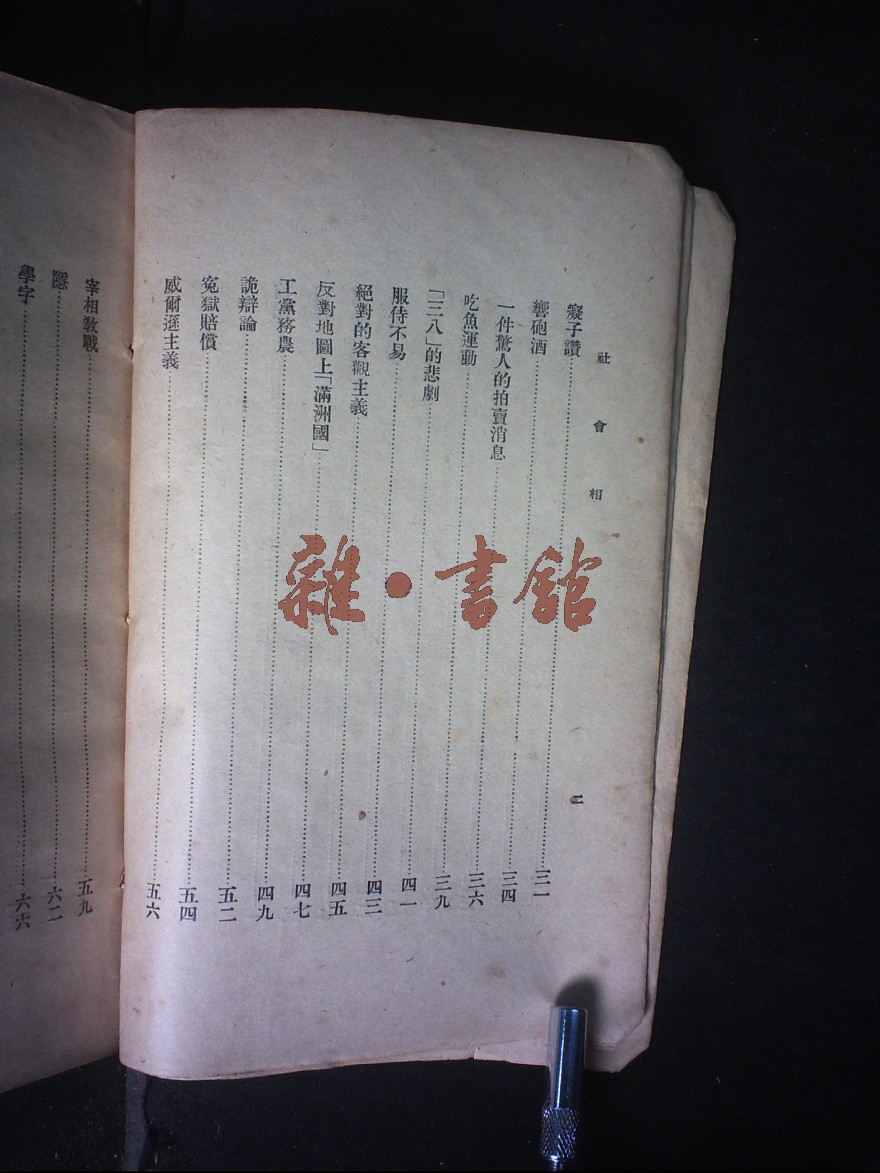 社會相 二
癡子讚……三二
響砲酒……三四
一件驚人的拍賣消息……三六
吃魚運動……三九
「三八」的悲劇……四一
服侍不易……四三
絕對的客觀主義……四五
反對地圖上「滿洲國」……四七
工黨務農……四九
詭辯論……五二
冤獄賠償……五四
威爾遜主義……五六
宰相教戰……五九
隱……六二
學字……六六
雜·書館